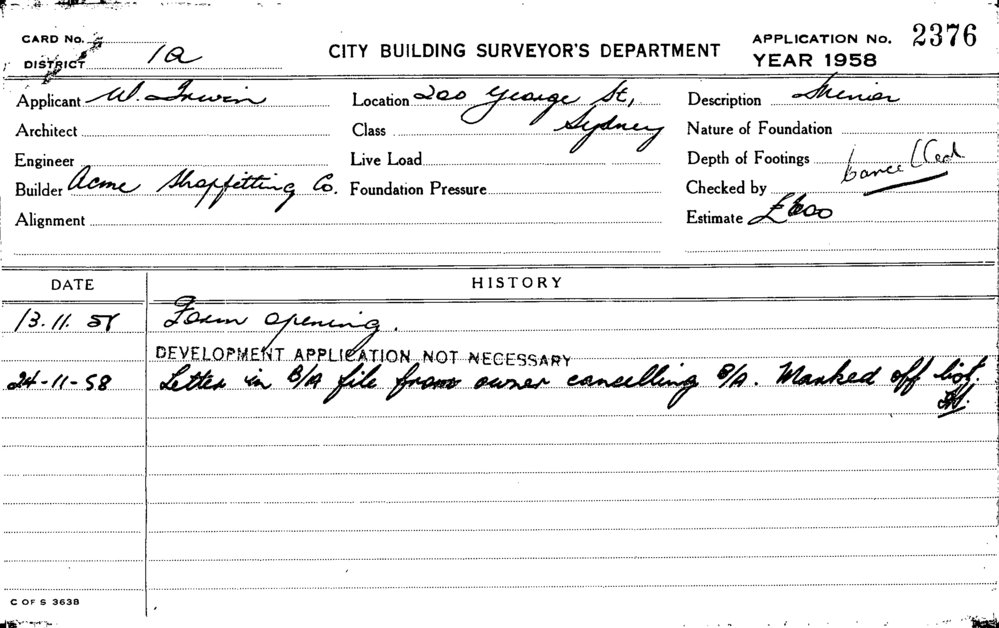 CARD No.
DISTRICT 1a
CITY BUILDING SURVEYOR'S DEPARTMENT
APPLICATION No. 2376
YEAR 1958
Applicant W. Irwin
Location 200 George St,
Sydney
Description
Architect
Class
Nature of Foundation
Engineer
Live Load
Depth of Footings
Cancelled
Builder Acme Shopfitting Co.
Foundation Pressure
Checked by
Alignment
Estimate £600
DATE
HISTORY
13.11.58 Form opening.
DEVELOPMENT APPLICATION NOT NECESSARY
24-11-58 Letter in B/A file from owner cancelling B/A. Marked off list.
C OF S 363B